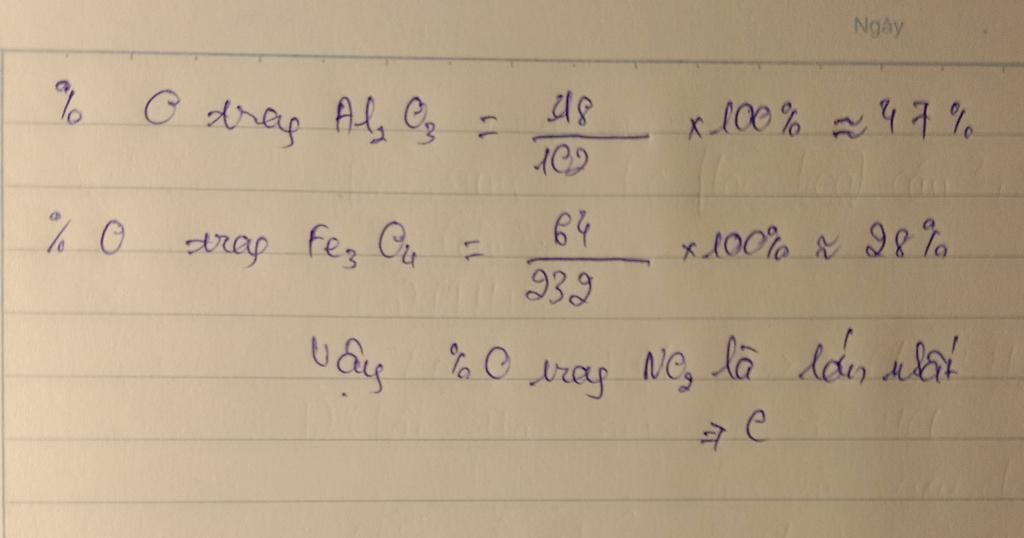 Ngày
% O trong Al₂O₃ = 48/102 ×100% ≈ 47%
% O trong Fe₃O₄ = 64/232 ×100% ≈ 28%
Vậy %O trong NO₂ là lớn nhất
⇒ C